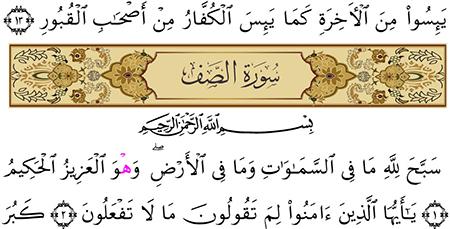 يَئِسُوا۟ مِنَ ٱلْـَٔاخِرَةِ كَمَا يَئِسَ ٱلْكُفَّارُ مِنْ أَصْحَٰبِ ٱلْقُبُورِ ﴿١٣﴾
سُورَةُ الصَّفِّ
بِسْمِ ٱللَّهِ ٱلرَّحْمَٰنِ ٱلرَّحِيمِ
سَبَّحَ لِلَّهِ مَا فِى ٱلسَّمَٰوَٰتِ وَمَا فِى ٱلْأَرْضِ ۖ وَهُوَ ٱلْعَزِيزُ ٱلْحَكِيمُ
﴿١﴾ يَٰٓأَيُّهَا ٱلَّذِينَ ءَامَنُوا۟ لِمَ تَقُولُونَ مَا لَا تَفْعَلُونَ ﴿٢﴾ كَبُرَ